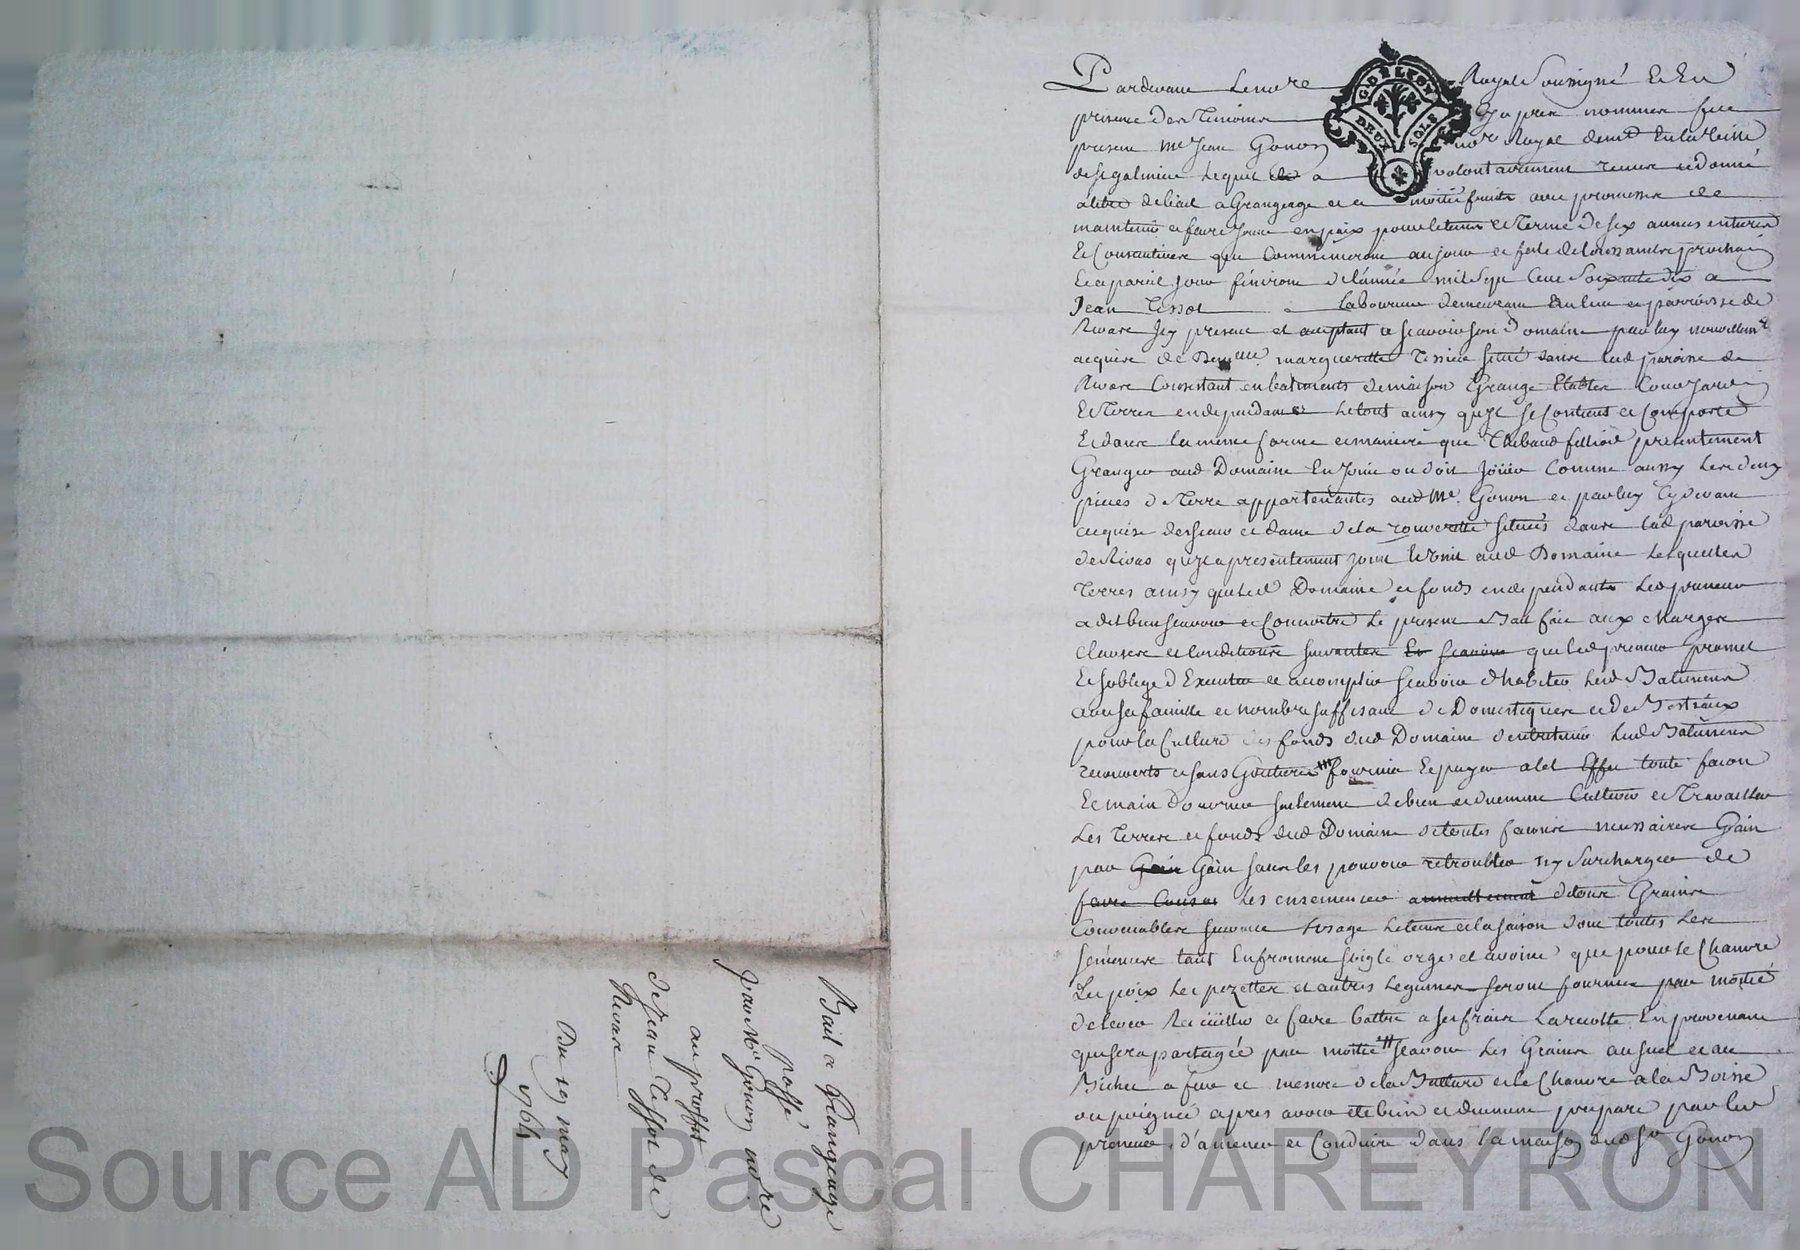 Pardevant Lenore Royal Soussigné Et En
presence Des Temoins Cy apres nommes fut
present Me Jean Gonon nore Royal demt En la ville
de St galmier Lequel a volontairement remis et donné
a titre de bail a Grangeage et a moitié fruits avec promesse de
maintenir et faire jouir en paix pour le tems et Terme de six années entieres
Et Consecutives qui Commenceront au jour et feste de toussaints prochain
Et a pareil jour finiront de l'année mil sept Cent Soixante dix a
Jean Tissot Laboureur demeurant En lieu et parroisse de
Rivare Icy present et acceptant scavoir son Domaine par luy nouvellemt
acquise de Demlle margueritte Tissier situé dans lad paroisse de
Rivare Consistant en batiments de maison Grange Etables Cour Jardin
Et Terres en dependantes le tout ainsy qu'il se Contient et Comporte
Et dans la meme forme et maniere que Thibaud fillioil presentement
Granger aud Domaine En Jouit ou doit Joüir Comme aussy Les deux
pieces de Terre appartenantes aud Me Gonon et par luy Cydevant
acquise des sieur et dame de la rouverette situés dans lad paroisse
de Rivas qu'il a presentement joint Et Unit aud Domaine Lesquelles
Terres ainsy que led Domaine et fonds en dependants Led preneur
a dit bien scavoir et Connoitre Le present Bail fait aux charges
Clauses et Conditions suivantes que led preneur promet
Et s'oblige d'Executer et accomplir scavoir d'habiter Lesd Batimens
avec sa famille et nombre suffisant de Domestiques et de Bestiaux
pour la Culture des fonds dud Domaine d'entretenir Lesd Batimens
recouverts et sans Goutieres fournir Et payer a cet Effet toute facon
Et main d'oeuvre seulement de bien et duement Cultiver et Travailler
Les Terres et fonds dud Domaine de toutes facons necessaires Grain
par Gain sans les pouvoir retroubler ny Surcharger de
Les ensemencer de tous Grains
Convenables suivant l'usage Le tems et la saison dont toutes Les
semences tant En froment seigle orge et avoine que pour le Chanvre
Les poix Les pezettes et autres Legumes seront fournies par moitié
de lever Recüillir et faire battre a ses fraix La recolte En provenant
qui sera partagée par moitié scavoir Les Grains au suel et au
Bichet a fur et mesure de la Batture et le Chanvre a la Boisse
ou poignée apres avoir ete bien et duement preparé par led
preneur d'amener et Conduire dans la maison dud Sr Gonon
Bail a Grangeage
passé
par Me Gonon notre
au proffit
de Jean Tissot de
Rivare
Du 19 may
1764
GD DE LYON
DEUX SOLS
Source AD Pascal CHAREYRON